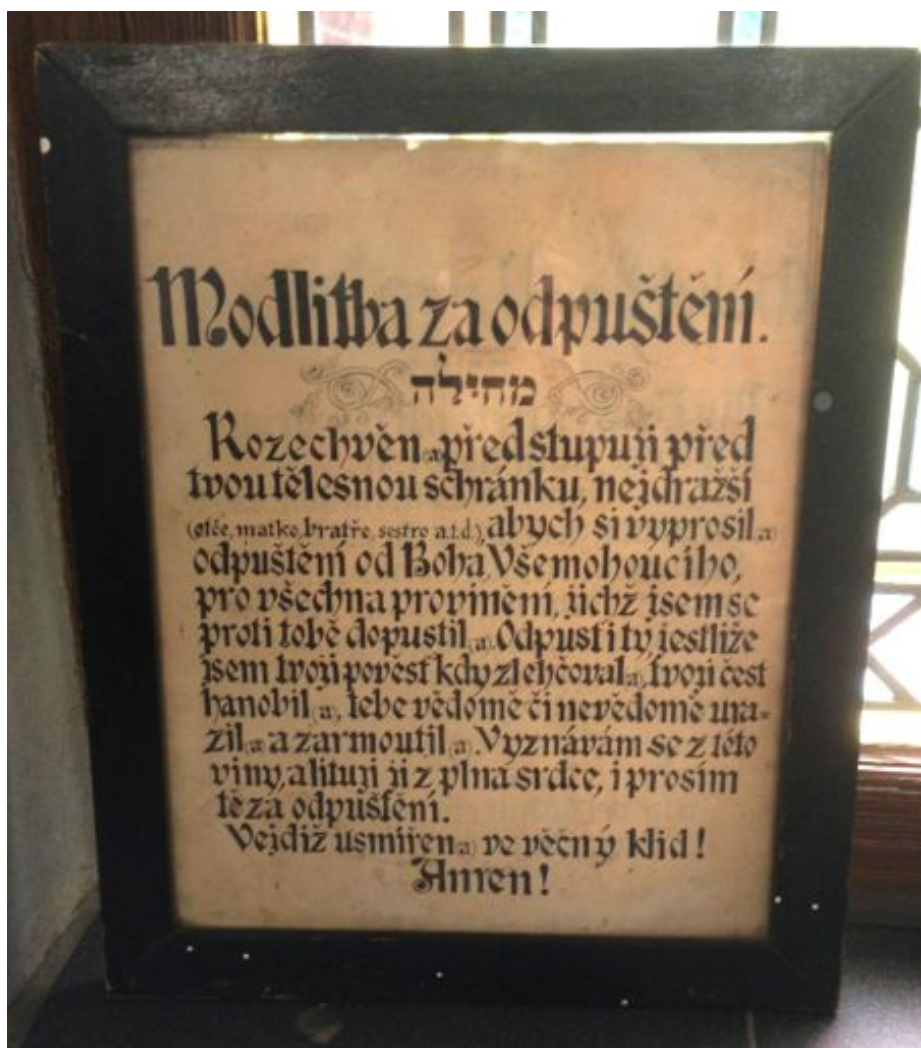 Modlitba za odpuštění.
מחילה
Rozechvěn(a) předstupuji před
tvou tělesnou schránku, nejdražší
(otče, matko, bratře, sestro a.t.d.), abych si vyprosil(a)
odpuštění od Boha Všemohoucího,
pro všechna provinění, jichž jsem se
proti tobě dopustil(a). Odpusti ty, jestliže
jsem tvoji pověst kdy zlehčoval(a), tvoji čest
hanobil(a), tebe vědomě či nevědomě ura-
zil(a) a zarmoutil(a). Vyznávám se z této
viny, a lituji jí z plna srdce, i prosím
tě za odpuštění.
Vejdiž usmířen(a) ve věčný klid!
Amen!